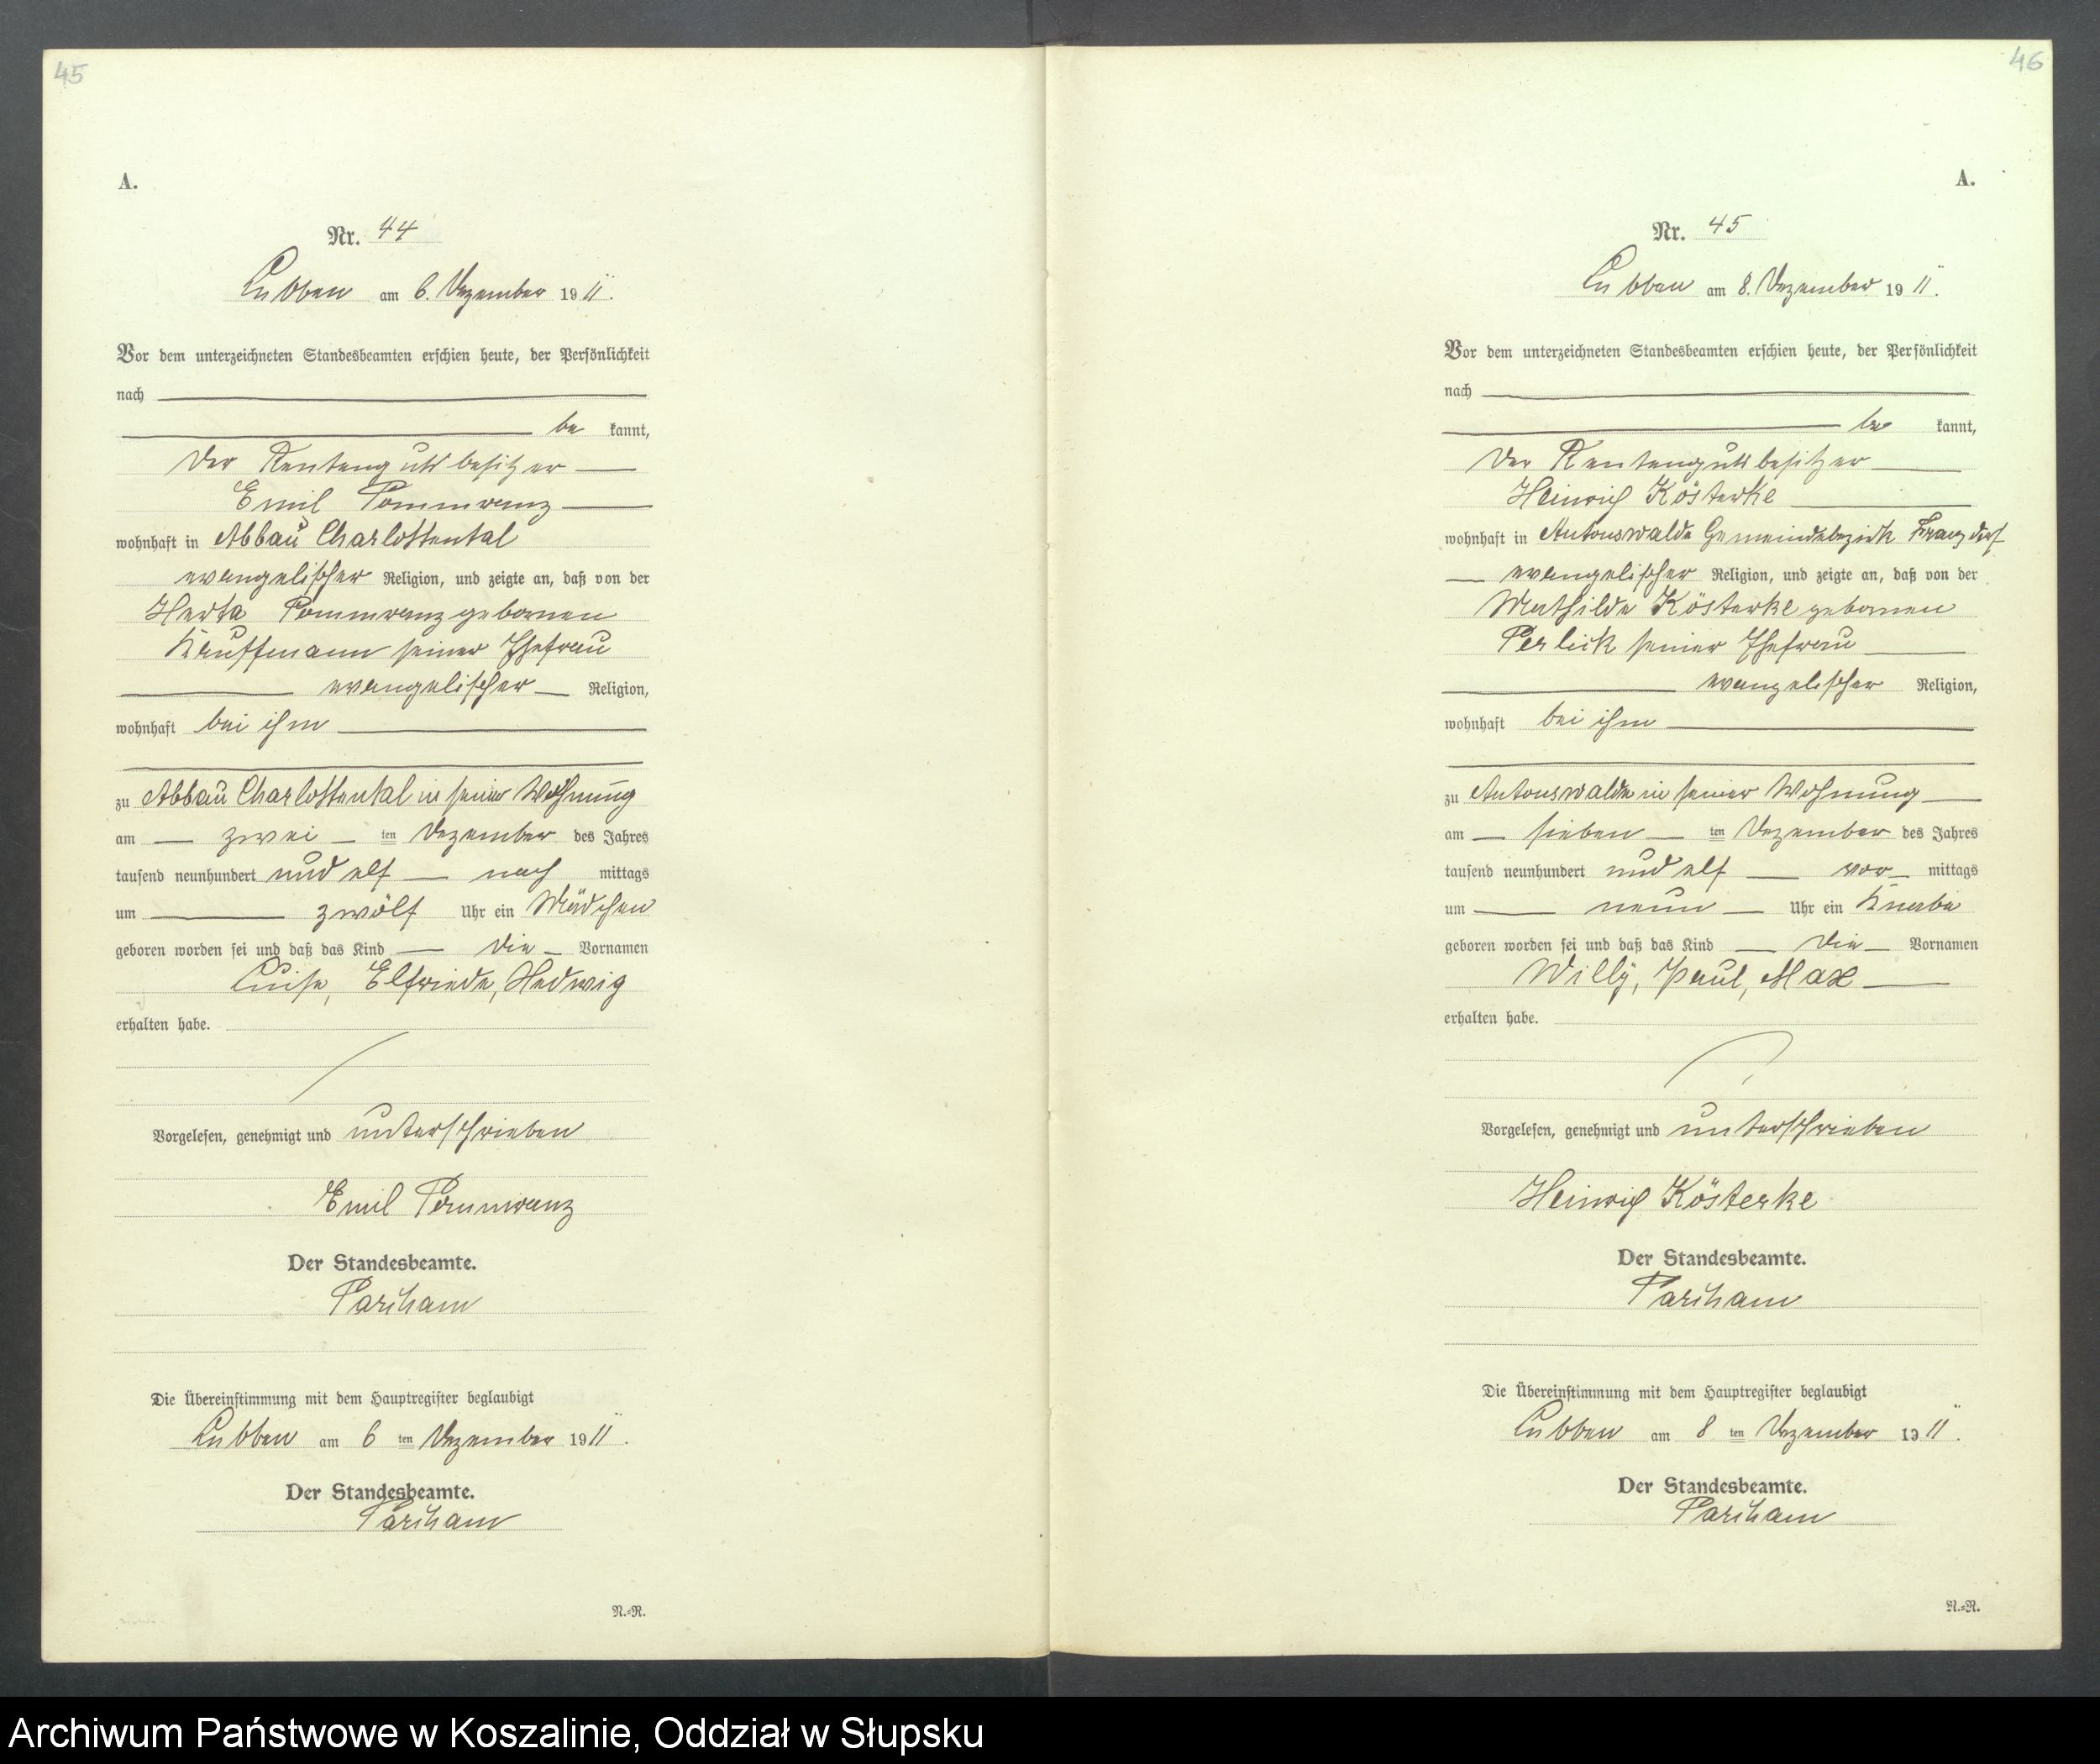 45
A.
Nr. 44
Lubben am 6. Dezember 1911.
Vor dem unterzeichneten Standesbeamten erschien heute, der Persönlichkeit
nach
be kannt,
der Rentengutsbesitzer
Emil Pommrenz
wohnhaft in Abbau Charlottental
evangelischer Religion, und zeigte an, daß von der
Herta Pommrenz geborenen
Kauffmann seiner Ehefrau
evangelischer Religion,
wohnhaft bei ihm
zu Abbau Charlottental in seiner Wohnung
am zwei ten Dezember des Jahres
tausend neunhundert und elf nach mittags
um zwölf Uhr ein Mädchen
geboren worden sei und daß das Kind die Vornamen
Luise, Elfriede, Hedwig
erhalten habe.
Vorgelesen, genehmigt und unterschrieben
Emil
Der Standesbeamte.
Die Übereinstimmung mit dem Hauptregister beglaubigt
Lubben am 6 ten Dezember 1911.
Der Standesbeamte.
N.=R.
46
A.
Nr. 45
Lubben am 8. Dezember 1911.
Vor dem unterzeichneten Standesbeamten erschien heute, der Persönlichkeit
nach
be kannt,
der Rentengutsbesitzer
Heinrich Kösterke
wohnhaft in Antonswalde Gemeindebezirk Franzdorf
evangelischer Religion, und zeigte an, daß von der
Mathilde Kösterke geborenen
Perlick seiner Ehefrau
evangelischer Religion,
wohnhaft bei ihm
zu Antonswalde in seiner Wohnung
am sieben ten Dezember des Jahres
tausend neunhundert und elf vor mittags
um neun Uhr ein Knabe
geboren worden sei und daß das Kind die Vornamen
Willy, Paul, Max
erhalten habe.
Vorgelesen, genehmigt und unterschrieben
Heinrich Kösterke
Der Standesbeamte.
Die Übereinstimmung mit dem Hauptregister beglaubigt
Lubben am 8 ten Dezember 1911.
Der Standesbeamte.
N.=R.
Archiwum Państwowe w Koszalinie, Oddział w Słupsku